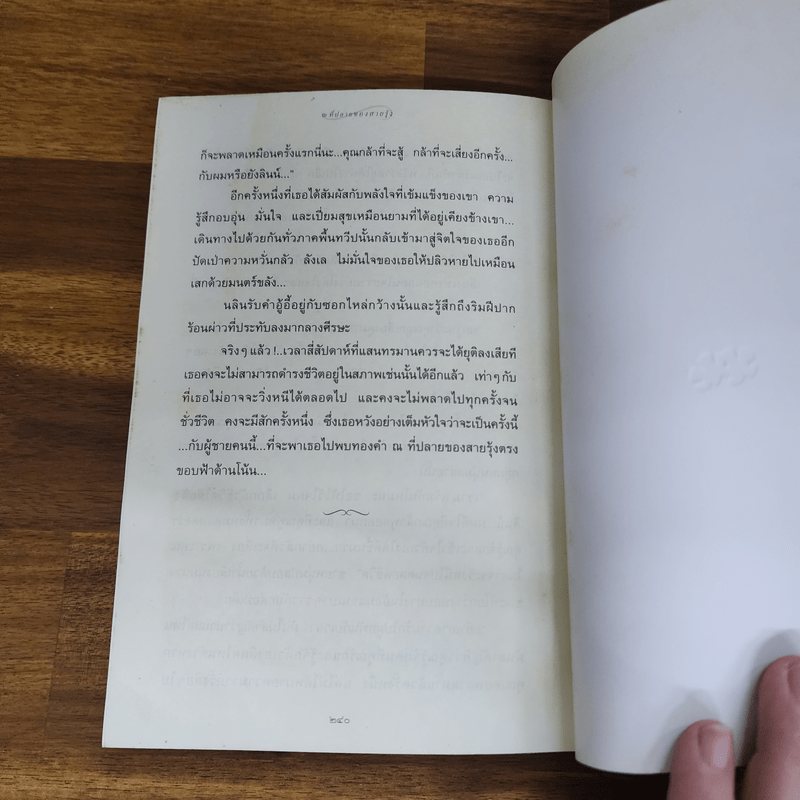 ณ ที่ปลายของสายรุ้ง
ก็จะพลาดเหมือนครั้งแรกนี่นะ...คุณกล้าที่จะสู้ กล้าที่จะเสี่ยงอีกครั้ง...
กับผมหรือยังลินน์..."
อีกครั้งหนึ่งที่เธอได้สัมผัสกับพลังใจที่เข้มแข็งของเขา ความ
รู้สึกอบอุ่น มั่นใจ และเปี่ยมสุขเหมือนยามที่ได้อยู่เคียงข้างเขา...
เดินทางไปด้วยกันทั่วภาคพื้นทวีปนั้นกลับเข้ามาสู่จิตใจของเธออีก
ปัดเป่าความหวั่นกลัว ลังเล ไม่มั่นใจของเธอให้ปลิวหายไปเหมือน
เสกด้วยมนตร์ขลัง...
นลินรับคำอู้อี้อยู่กับซอกไหล่กว้างนั้นและรู้สึกถึงริมฝีปาก
ร้อนผ่าวที่ประทับลงมากลางศีรษะ
จริงๆ แล้ว !..เวลาสี่สัปดาห์ที่แสนทรมานควรจะได้ยุติลงเสียที
เธอคงจะไม่สามารถดำรงชีวิตอยู่ในสภาพเช่นนั้นได้อีกแล้ว เท่าๆ กับ
ที่เธอไม่อาจจะวิ่งหนีได้ตลอดไป และคงจะไม่พลาดไปทุกครั้งจน
ชั่วชีวิต คงจะมีสักครั้งหนึ่ง ซึ่งเธอหวังอย่างเต็มหัวใจว่าจะเป็นครั้งนี้
...กับผู้ชายคนนี้...ที่จะพาเธอไปพบทองคำ ณ ที่ปลายของสายรุ้งตรง
ขอบฟ้าด้านโน้น...
๒๔๐